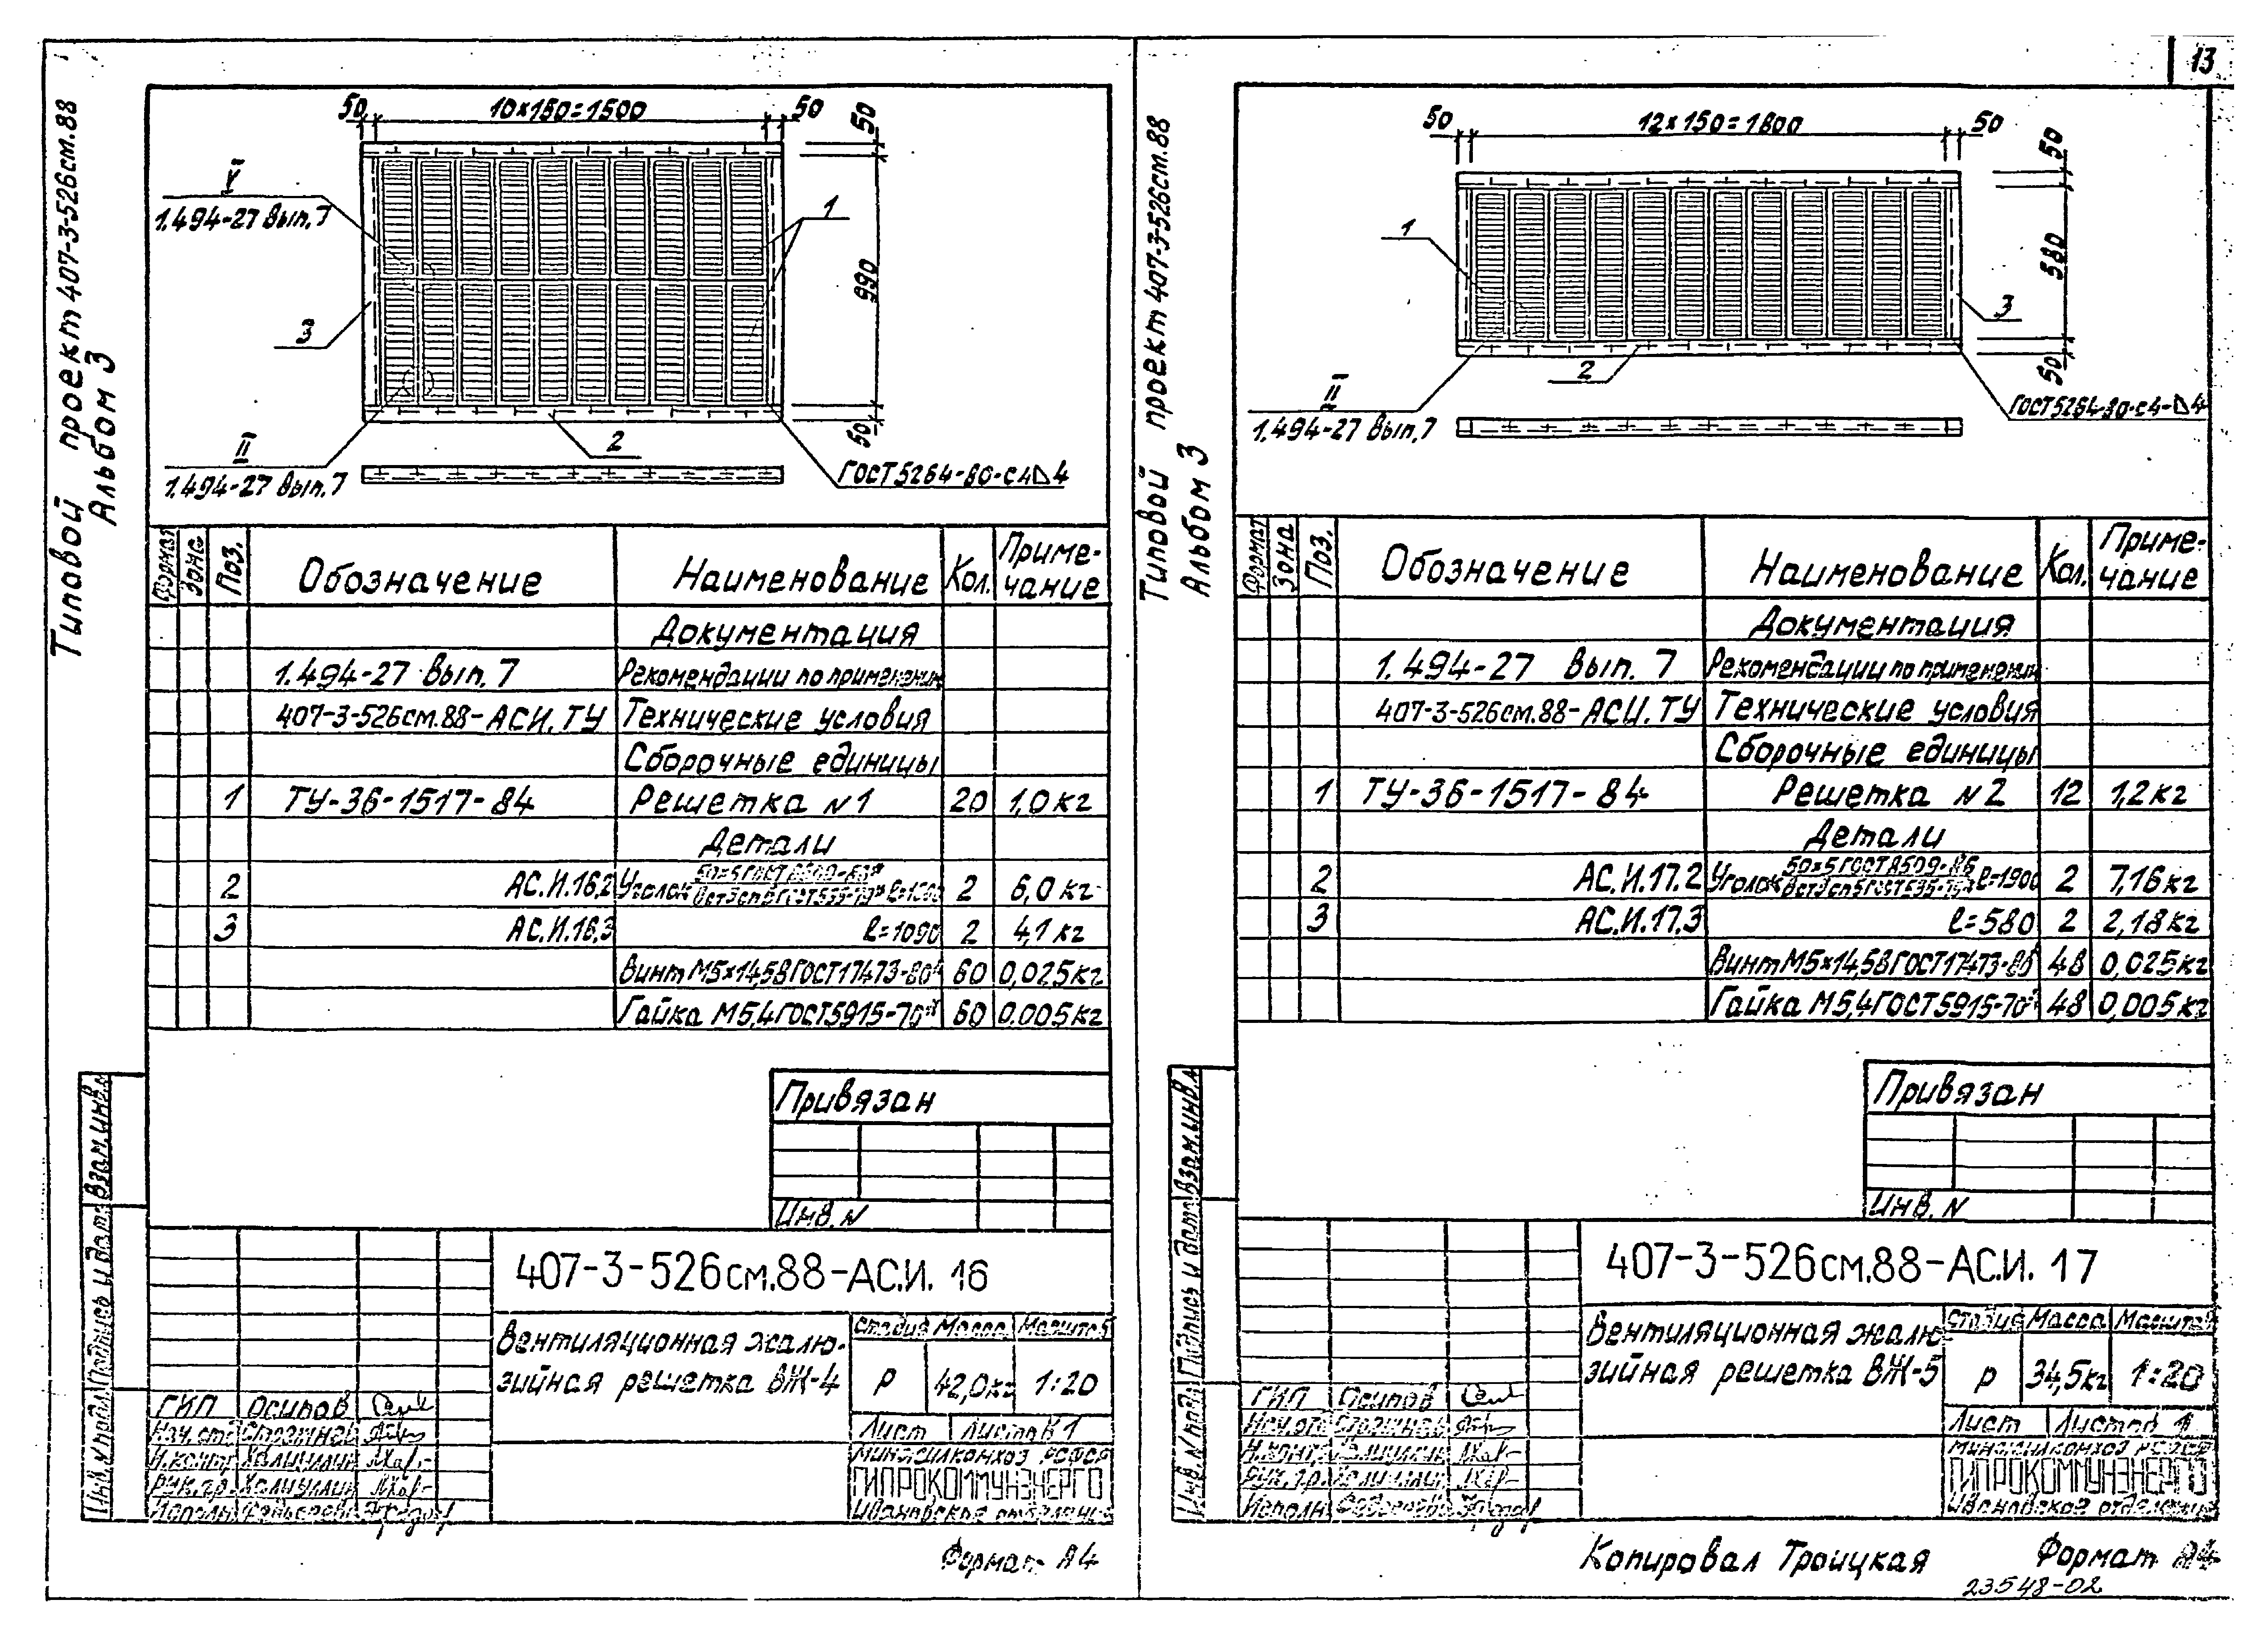 13
Типовой проект 407-3-526см.88
Альбом 3
50 10×150=1500 50
50
990
50
V
1.494-27 Вып.7
1
3
II
1.494-27 Вып.7
2
ГОСТ5264-80-С4 4
Формат Зона Поз. Обозначение Наименование Кол. Примечание
Документация
1.494-27 Вып.7 Рекомендации по применению
407-3-526см.88-АСИ.ТУ Технические условия
Сборочные единицы
1 ТУ-36-1517-84 Решетка N1 20 1,0кг
Детали
2 АС.И.16.2 Уголок 2 6,0кг
3 АС.И.16.3 ℓ=1090 2 4,1кг
Винт М5×14,58 ГОСТ17473-80 60 0,025кг
Гайка М5,4 ГОСТ5915-70* 60 0.005кг
Привязан
Инв.N
407-3-526см.88-АС.И. 16
Вентиляционная жалю-
зийная решетка ВЖ-4
Стадия Масса Масштаб
Р 42,0кг 1:20
Лист Листов 1
Минжилкомхоз РСФСР
ГИПРОКОММУНЭНЕРГО
Ивановское отделение
ГИП Осипов
Нач.отд
Н.контр Халиуллин
Рук.гр. Халиуллин
Исполн
Взам.инв.N
Подпись и дата
Инв.N подл.
Формат А4
Типовой проект 407-3-526см.88
Альбом 3
50 12×150=1800 50
50
580
50
1
3
2
II
1.494-27 Вып.7
ГОСТ5264-80-С4- 4
Формат Зона Поз. Обозначение Наименование Кол. Примечание
Документация
1.494-27 Вып. 7 Рекомендации по применению
407-3-526см.88-АСИ.ТУ Технические условия
Сборочные единицы
1 ТУ-36-1517-84 Решетка N2 12 1,2кг
Детали
2 АС.И.17.2 Уголок 50×5 ГОСТ 8509-86 ℓ=1900 2 7,16кг
3 АС.И.17.3 ℓ=580 2 2,18кг
Винт М5×14,58 ГОСТ17473-80 48 0,025кг
Гайка М5,4 ГОСТ5915-70* 48 0,005кг
Привязан
Инв.N
407-3-526см.88-АС.И. 17
Вентиляционная жалю-
зийная решетка ВЖ-5
Стадия Масса Масштаб
Р 34,5кг 1:20
Лист Листов 1
Минжилкомхоз РСФСР
ГИПРОКОММУНЭНЕРГО
Ивановское отделение
ГИП Осипов
Нач.отд
Н.контр Халиуллин
Рук.гр. Халиуллин
Исполн
Взам.инв.N
Подпись и дата
Инв.N подл.
Копировал Троицкая Формат А4
23548-02